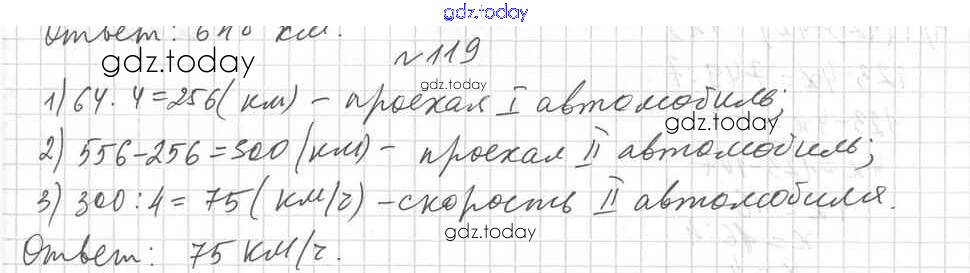 gdz.today
Ответ: 648 км.
gdz.today
№119
gdz.today
1) 64 · 4 = 256 (км) – проехал I автомобиль;
gdz.today
2) 556 – 256 = 300 (км) – проехал II автомобиль;
3) 300 : 4 = 75 (км/ч) – скорость II автомобиля.
gdz.today
Ответ: 75 км/ч.